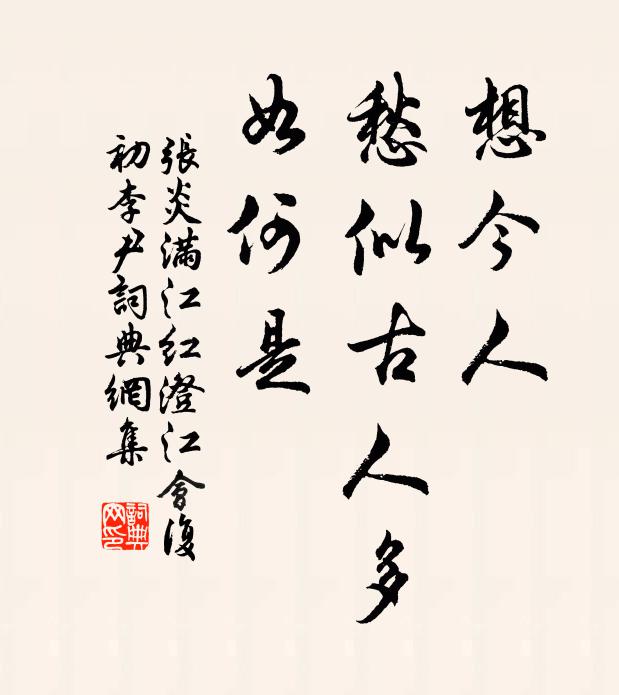 想今人
愁似古人多
如何是
張炎滿江紅澄江會復
初李尹詞典網集
詞典网印